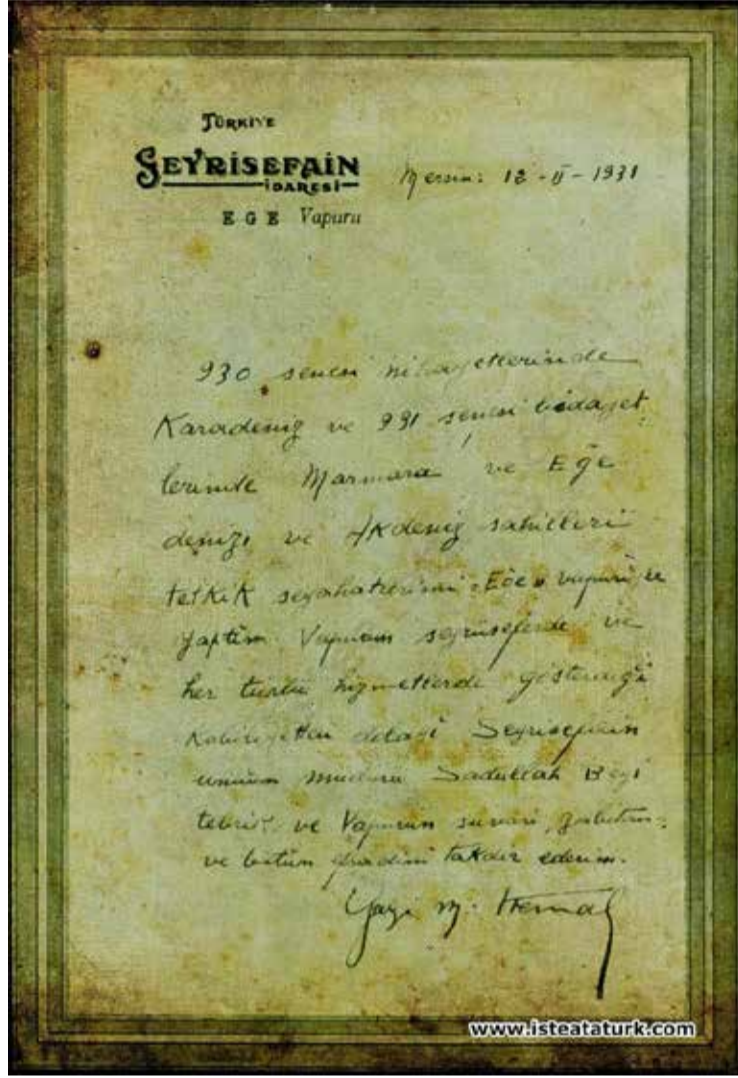 TÜRKİYE
SEYRİSEFAİN
İDARESİ
EGE Vapuru
Mersin: 12-II-1931
930 senesi nihayetlerinde
Karadeniz ve 931 senesi bidayet
lerinde Marmara ve Eğe
denizi ve Akdeniz sahilleri
tetkik seyahatlerimi "Ege" vapuru ile
yaptım. Vapurun seyrüseferde ve
her türlü hizmetlerde gösterdiği
kabiliyetten dolayı Seyrisefain
umum müdürü Sadullah Beyi
tebrik ve Vapurun süvari, zabitan,
ve bütün efradını takdir ederim.
Gazi M. Kemal
www.isteataturk.com